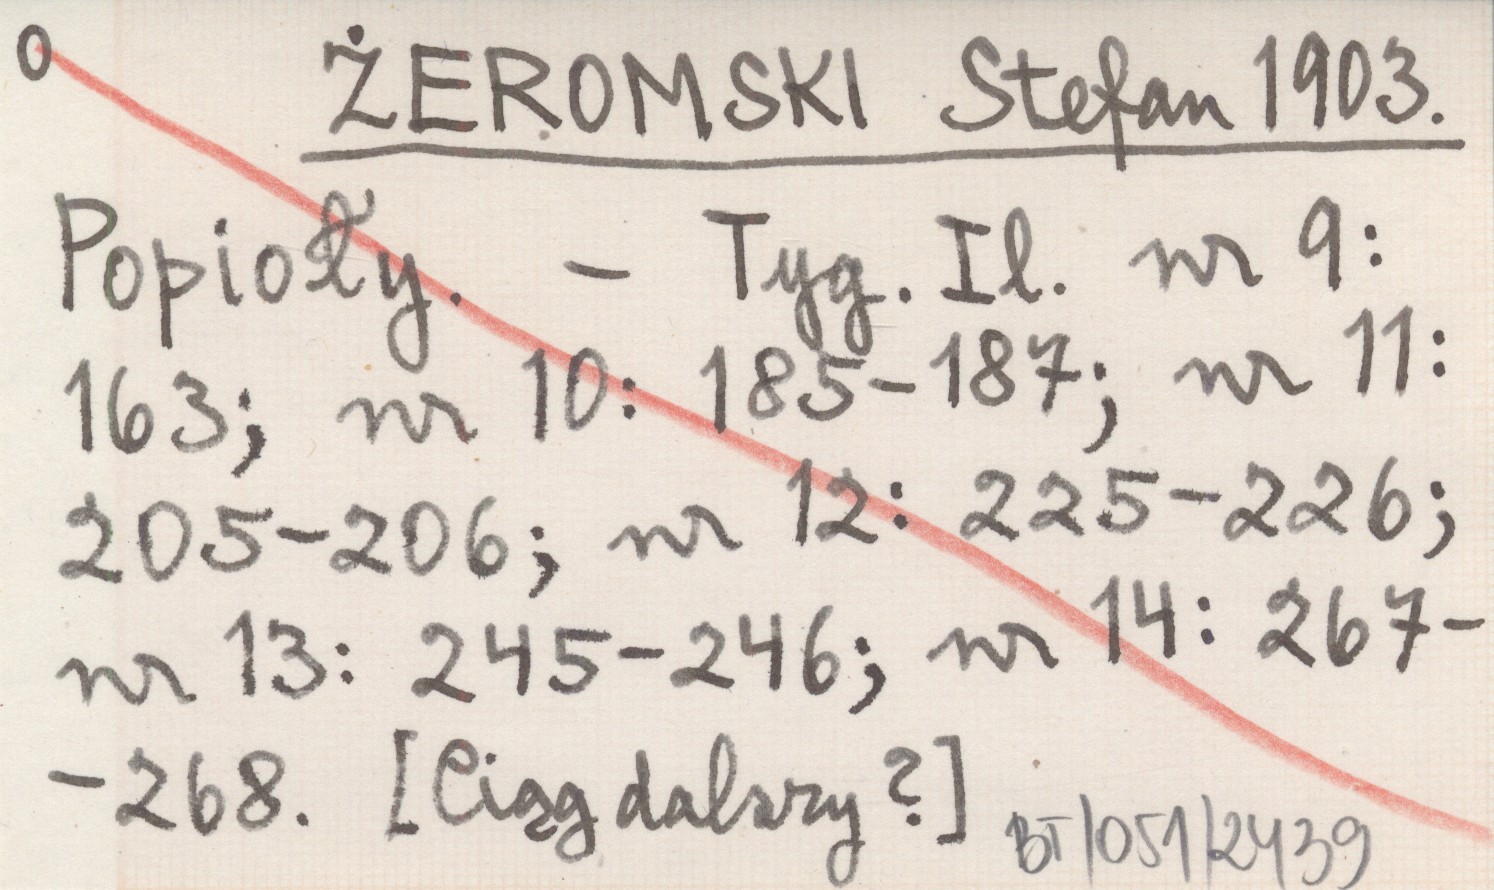 0 ŻEROMSKI Stefan 1903.
Popioły. – Tyg. Il. nr 9:
163; nr 10: 185–187; nr 11:
205–206; nr 12: 225–226;
nr 13: 245–246; nr 14: 267–
–268. [Ciąg dalszy?]
BT/051/2439